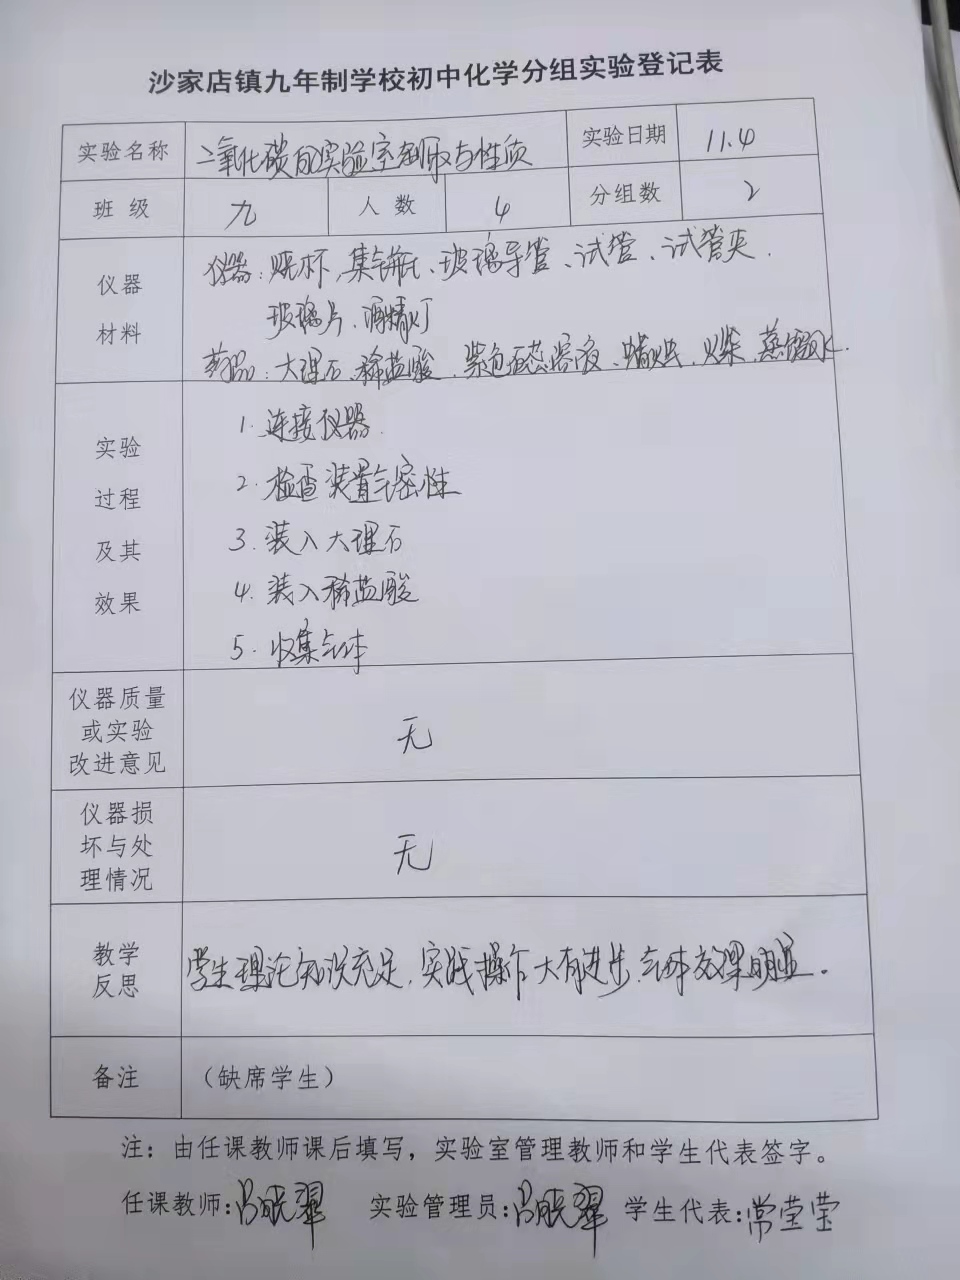 沙家店镇九年制学校初中化学分组实验登记表
实验名称 二氧化碳的实验室制取与性质 实验日期 11.4
班级 九 人数 4 分组数 2
仪器
材料
仪器:烧杯、集气瓶、玻璃导管、试管、试管夹.
玻璃片、酒精灯
药品:大理石、稀盐酸、紫色石蕊溶液、蜡烛、火柴、蒸馏水.
实验
过程
及其
效果
1.连接仪器.
2.检查装置气密性
3.装入大理石
4.装入稀盐酸
5.收集气体
仪器质量
或实验
改进意见
无
仪器损
坏与处
理情况
无
教学
反思
学生理论知识充足,实践操作大有进步,气体效果明显。
备注 (缺席学生)
注:由任课教师课后填写,实验室管理教师和学生代表签字。
任课教师: 实验管理员: 学生代表:常莹莹